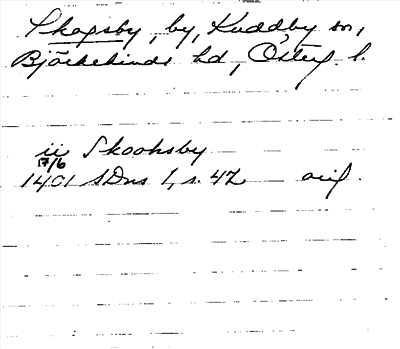 Skogsby, by, Kuddby sn,
Björkekinds hd, Österg. l.
ii Skoghsby
17/6
1401 SDns 1, s. 42 orig.